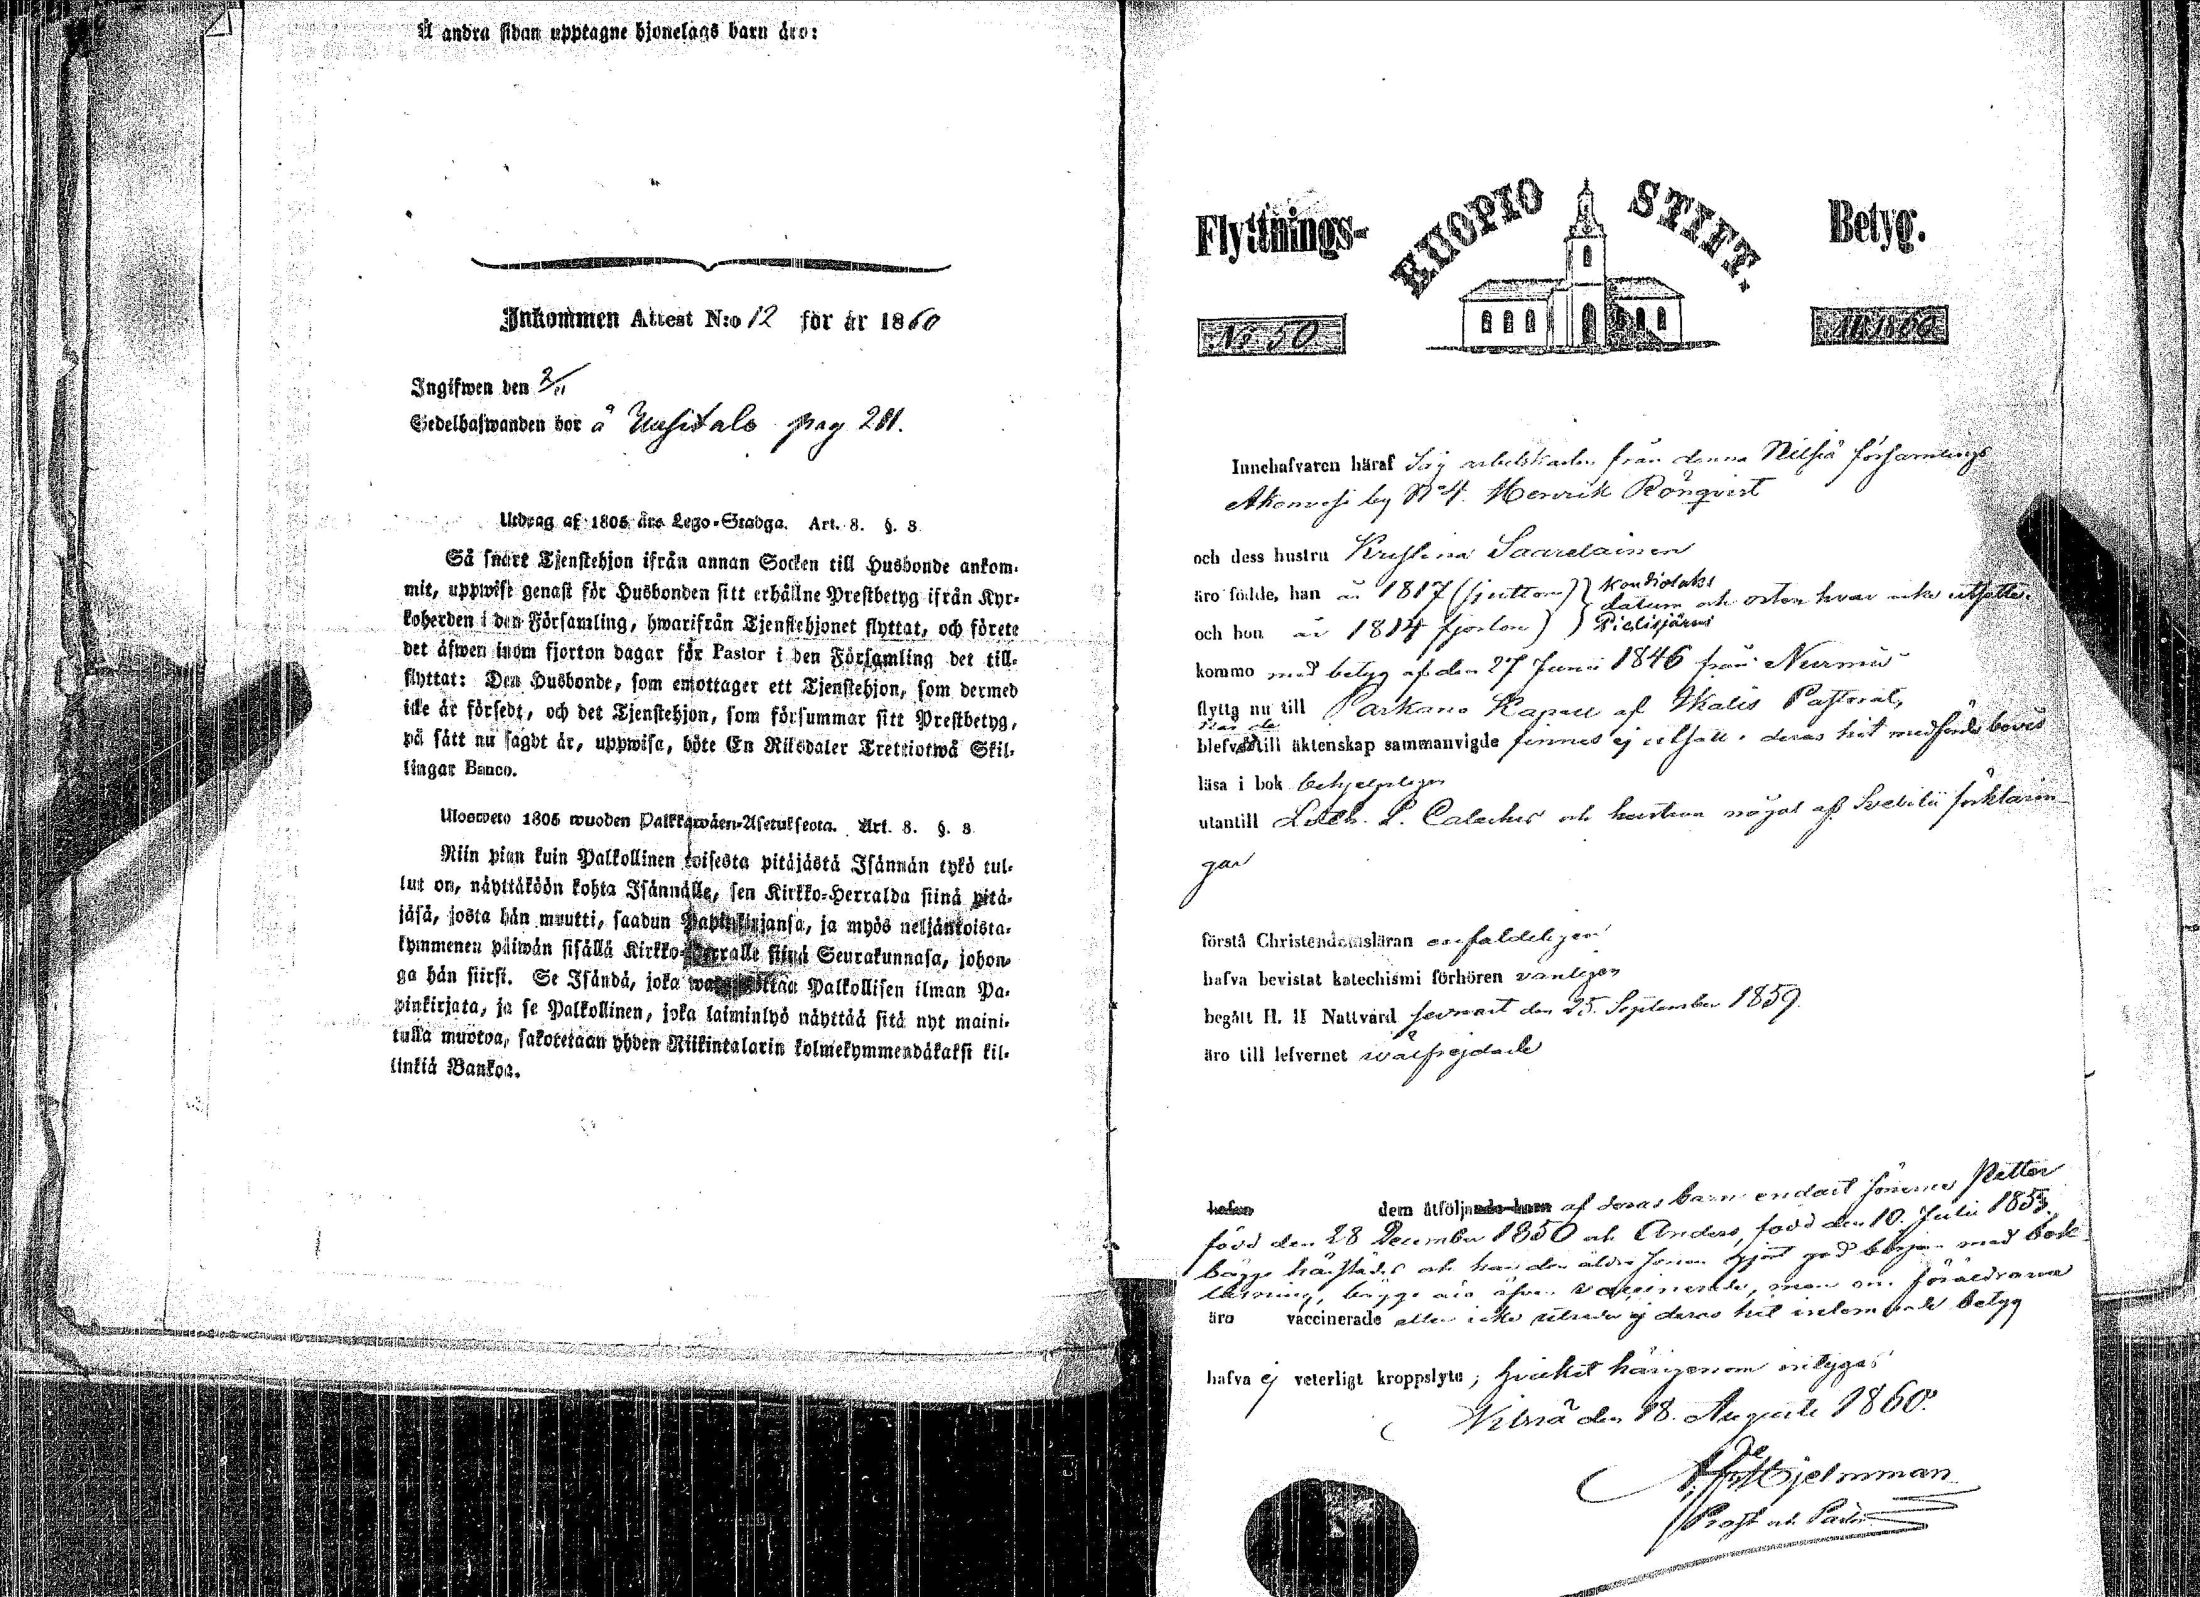 Å andra sidan upptagne hjonelags barn äro:
Inkommen Attest N:o 12 för år 1860
Ingifwen den 2/11
Sedelhafwanden bor å Uusitalo pag 211.
Utdrag af 1805 års Lego-Stadga. Art. 8. §. 8.
Så snart Tjenstehjon ifrån annan Socken till Husbonde ankom-
mit, uppwise genast för Husbonden sitt erhållne Prestbetyg ifrån Kyr-
koherden i den Församling, hwarifrån Tjenstehjonet flyttat, och förete
det äfwen inom fjorton dagar för Pastor i den Församling det till-
flyttat: Den Husbonde, som emottager ett Tjenstehjon, som dermed
icke är försedt, och det Tjenstehjon, som försummar sitt Prestbetyg,
på sätt nu sagdt är, uppwisa, böte En Riksdaler Trettiotwå Skil-
lingar Banco.
Ulosweto 1805 wuoden Palkkawäen-Asetuksesta. Art. 8. §. 8.
Niin pian kuin Palkollinen toisesta pitäjästä Isännän tykö tul-
lut on, näyttäköön kohta Isännälle, sen Kirkko-Herralda siinä pitä-
jäsä, josta hän muutti, saadun Papinkirjansa, ja myös neljäntoista-
kymmenen päiwän sisällä Kirkko-Herralle siinä Seurakunnasa, johon-
ga hän siirsi. Se Isändä, joka wastaanottaa Palkollisen ilman Pa-
pinkirjata, ja se Palkollinen, joka laiminlyö näyttää sitä nyt maini-
tulla muotoa, sakotetaan yhden Riikintalarin kolmekymmendäkaksi kil-
linkiä Bankoa.
Flyttnings- KUOPIO STIFT. Betyg.
No 50 År 1860
Innehafvaren häraf Såg arbetskarlen från denna Nilsiä församlings
Akonvesi by No 4. Henrik Rönqvist
och dess hustru Kristina Saarelainen
äro födde, han år 1817 (sjutton) Kondiolaks
datum och orten hvar icke utsatte.
och hon år 1814 fjorton) Pielisjärvi
kommo med betyg af den 27 Junii 1846 från Nurmis
flytta nu till Parkano Kapell af Ikalis Pastorat,
när de
blefvo till äktenskap sammanvigde finnes ej utsatt i deras hit medförda bevis
läsa i bok behjelpligen
utantill Luth. L. Cateches och hustrun något af Svebilii förklarin-
gar
förstå Christendomsläran enfaldeligen
hafva bevistat katechismi förhören vanligen
begått H. H Nattvard senast den 25. September 1859.
äro till lefvernet wälfrejdade
hafva dem åtföljande barn af deras barn endast sönerna Petter
född den 28 December 1850 och Anders, född den 10. Julii 1853.
bägge härstädes och har den äldre sonen gjort god början med bok-
läsning, bägge äro äfven vaccinerade, men om föräldrarna
äro vaccinerade eller icke utreder ej deras hit inlemnade betyg
hafva ej veterligt kroppslyte; hvilket härigenom intygas
Nilsiä den 18. Augusti 1860.
Hjelmman
Prost och Pastor